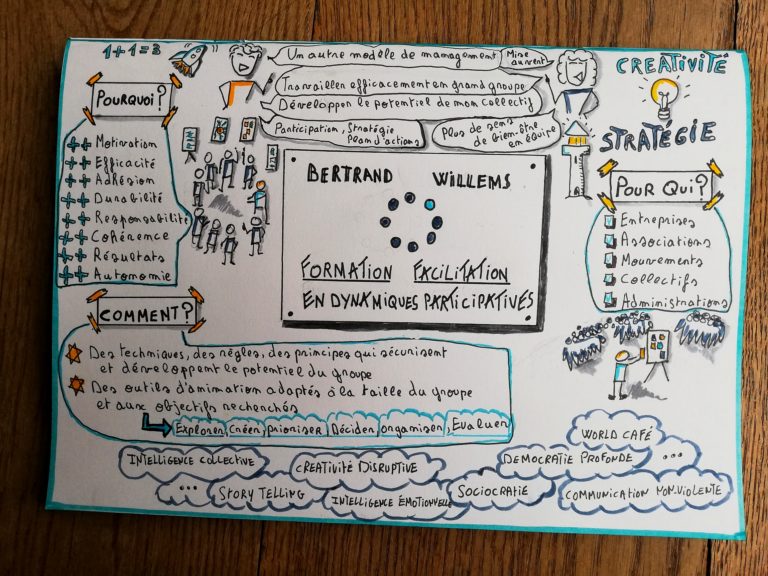 1+1=3
Un autre modèle de management
Mise
au vert
Travailler efficacement en grand groupe
Développer le potentiel de mon collectif
Participation, Stratégie
Plan d'actions
Plus de sens
de bien-être
en équipe
CREATIVITÉ
STRATÉGIE
POURQUOI?
++ Motivation
++ Efficacité
++ Adhésion
++ Durabilité
++ Responsabilité
++ Cohérence
++ Résultats
++ Autonomie
BERTRAND WILLEMS
FORMATION FACILITATION
EN DYNAMIQUES PARTICIPATIVES
POUR QUI?
Entreprises
Associations
Mouvements
Collectifs
Administrations
COMMENT?
Des techniques, des règles, des principes qui sécurisent
et développent le potentiel du groupe
Des outils d'animation adaptés à la taille du groupe
et aux objectifs recherchés
Explorer, Créer, prioriser, Décider, organiser, Evaluer
WORLD CAFÉ
INTELLIGENCE COLLECTIVE
CREATIVITÉ DISRUPTIVE
DEMOCRATIE PROFONDE
...
...
STORY TELLING
INTELLIGENCE ÉMOTIONNELLE
SOCIOCRATIE
COMMUNICATION NON-VIOLENTE